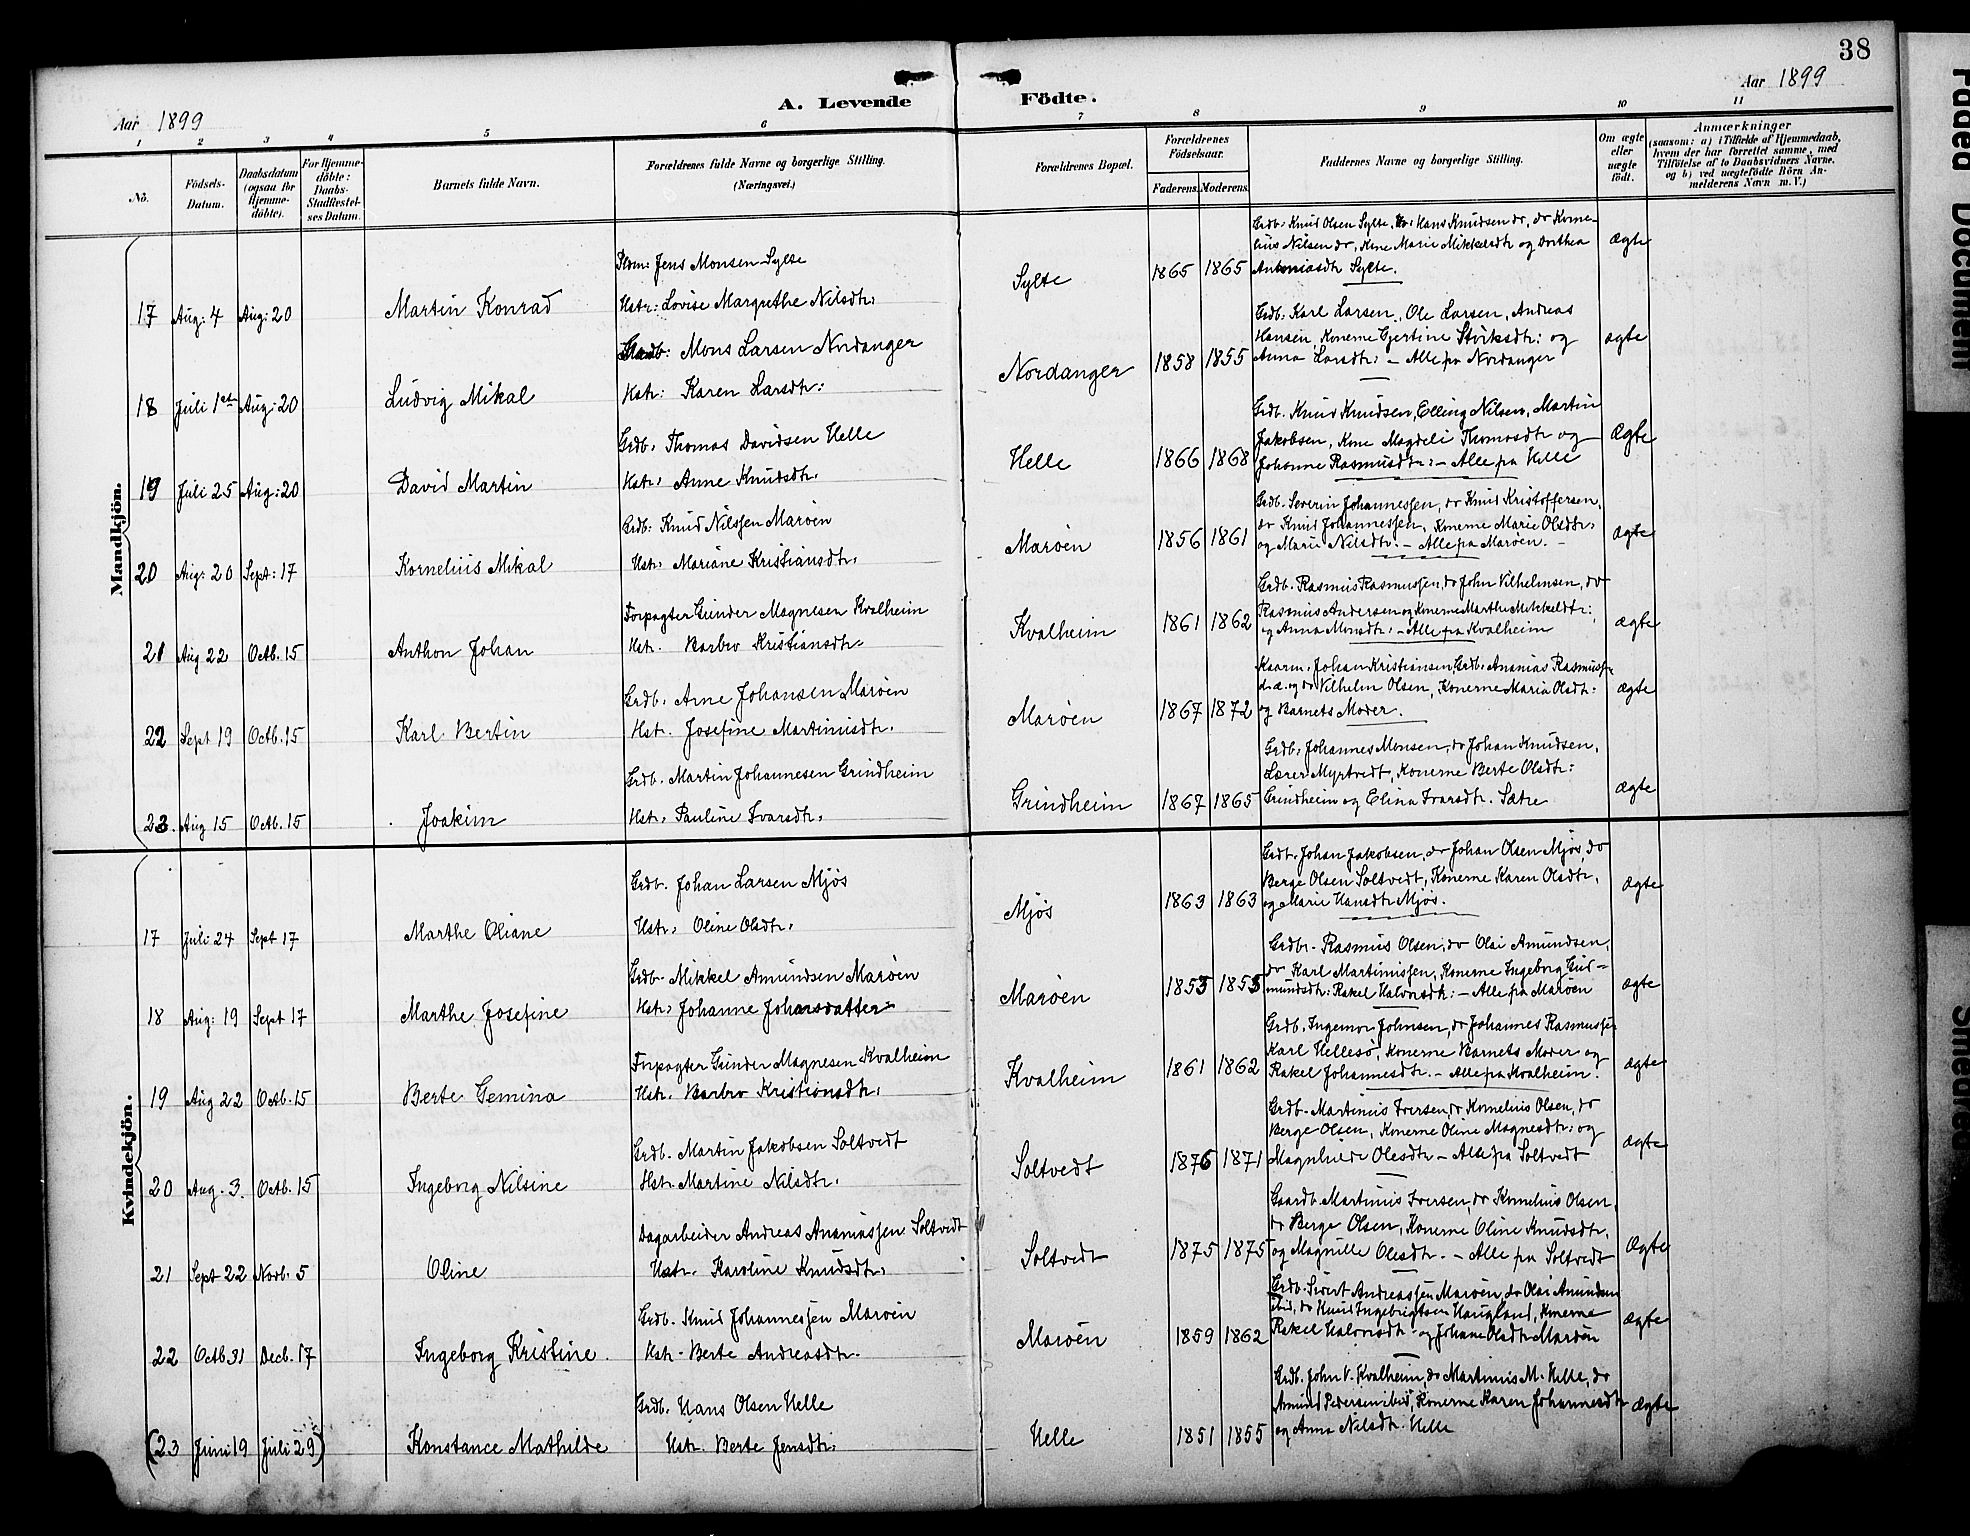 38
Aar 1899
A. Levende Födte.
Aar 1899
1 2 3 4 5 6 7 8 9 10 11
No.
Födsels-Datum.
Daabsdatum (ogsaa for Hjemme-döbte).
For Hjemme-döbte: Daabs-Stadfæstel-ses Datum.
Barnets fulde Navn.
Forældrenes fulde Navne og borgerlige Stilling. (Næringsvei.)
Forældrenes Bopæl.
Forældrenes Födselsaar.
Faderens. Moderens.
Faddernes Navne og borgerlige Stilling.
Om ægte eller uægte födt.
Anmærkninger
(saasom: a) i Tilfælde af Hjemmedaab, hvem der har forrettet samme, med Tilföielse af to Daabsvidners Navne, og b) ved uægtefödte Börn An-melderens Navn m. V.)
Mandkjön.
17 Aug: 4 Aug: 20 Martin Konrad
Jens Monsen Sylte
Hstr: Lovise Margrethe Nilsdtr:
Sylte 1865 1865
Grdb: Knud Olsen Sylte, Hans Knudsen do, do Korne-
lius Nilsen do, Kone Marie Mikkelsdtr og Dorthea
Antoniasdtr Sylte.
ægte
18 Juli 1st Aug: 20 Ludvig Mikal
Grdb: Mons Larsen Nordanger
Hstr: Karen Larsdtr:
Nordanger 1858 1855
Grdb: Karl Larsen, Ole Larsen, Andreas
Hansen, Konerne Gjertine Störksdtr: og
Anna Larsdtr: – Alle fra Nordanger
ægte
19 Juli 25 Aug: 20 David Martin
Grdb: Thomas Davidsen Helle
Hstr: Anne Knudsdtr.
Helle 1866 1868
Grdb. Knud Knudsen, Elling Nilsen, Martin
Jakobsen, Kone Magdeli Thomasdtr og
Johanne Rasmusdtr: – Alle fra Helle
Ægte
20 Aug: 20 Sept: 17 Kornelius Mikal
Grdb: Knud Nilssen Maröen
Hstr: Mariane Kristiansdtr:
Maröen 1856 1861
Grdb. Severin Johannessen, do Knud Kristoffersen,
do Knud Johannessen, Konerne Marie Olsdtr:
og Marie Nilsdtr. – Alle fra Maröen. –
ægte
21 Aug 22 Octb. 15 Anthon Johan
Forpagter Gunder Magnesen Kvalheim
Hstr. Barbro Kristiansdtr.
Kvalheim 1861 1862
Grdb. Rasmus Rasmussen, do John Vilhelmsen, do
Rasmus Andersen og Konerne Marthe Mikkelsdtr:
og Anna Monsdtr: – Alle fra Kvalheim
ægte
22 Sept 19 Octb. 15 Karl Bertin
Grdb. Arne Johansen Maröen
Hstr. Josefine Martinusdtr.
Maröen 1867 1872
Johan Kristiansen, Grdb. Ananias Rasmussen
d.æ. og do Vilhelm Olsen, Konerne Maria Olsdtr:
og Barnets Moder.
ægte
23. Aug 15 Octb. 15 Joakim
Grdb. Martin Johannesen Grindheim
Hstr: Pauline Ivarsdtr.
Grindheim 1867 1865
Grdb: Johannes Monsen, do Johan Knudsen,
Lærer Myrtvedt, Konerne Berte Olsdtr:
Grindheim og Elina Ivarsdtr. Sætre
ægte
Kvindekjön.
17 Juli 24 Sept 17 Marthe Oliane
Grdb. Johan Larsen Mjös
Hstr: Oline Olsdtr:
Mjös 1863 1863
Grdb. Johan Jakobsen, do Johan Olsen Mjös, do
Berge Olsen Soltvedt, Konerne Karen Olsdtr.
og Marie Hansdtr Mjös.
ægte
18 Aug: 19 Sept 17 Marthe Josefine
Grdb. Mikkel Amundsen Maröen
Hstr: Johanne Johansdatter
Maröen 1853 1855
Grdbr. Rasmus Olsen, do Olai Amundsen,
do Karl Martinussen, Konerne Ingeborg Gud-
mundsdtr: Rakel Halvorsdtr: – Alle fra Maröen
ægte
19 Aug 22 Octb. 15 Berte Gemina
Forpagter Gunder Magnesen Kvalheim
Hstr. Barbro Kristiansdtr.
Kvalheim 1861 1862
Grdb. Ingemor Johnsen, do Johannes Rasmussen
Karl Hellesö, Konerne Barnets Moder og
Rakel Johannesdtr. – Alle fra Kvalheim.
ægte
20 Aug. 3. Octb. 15 Ingeborg Nilsine
Grdb. Martin Jakobsen Soltvedt
Hstr. Martine Nilsdtr.
Soltvedt 1876 1871
Grdb. Martinus Iversen, do Kornelius Olsen, do
Berge Olsen, Konerne Oline Magnesdtr: og
Magnhilde Olesdtr – Alle fra Soltvedt
ægte
21 Sept 22 Novb. 5 Oline
Dagarbeider Andreas Ananiassen Soltvedt
Hstr. Karoline Knudsdtr.
Soltvedt 1875 1875
Gaardb. Martinus Iversen, do Kornelius Olsen,
do Berge Olsen, Konerne Oline Knudsdtr.
og Magnille Olesdtr. – Alle fra Soltvedt
Ægte
22 Octb 31 Decb. 17 Ingeborg Kristine.
Grdb. Knud Johannessen Maröen
Hstr. Berte Andreasdtr.
Maröen 1859 1862
Grdb. Sivert Andreassen Maröen, do Olai Amundsen
ibid, do Knud Ingebrigtsen Haugland, Konerne
Rakel Halvorsdtr og Johane Olsdtr Maröen
ægte
(23 Juni 19 Juli 29) Konstance Mathilde
Grdb. Hans Olsen Helle
Hstr. Berte Jensdtr:
Helle 1851 1855
Grdb. John V. Kvalheim, do Martinus M. Helle, do
Amund Pedersen ibid, Konerne Karen Johannesdtr
og Anna Nilsdtr. Helle
ægte
Faded Document
Smeared